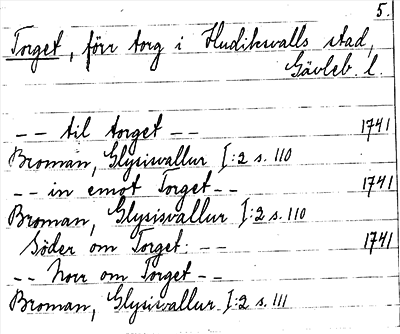 5.
Torget, förr torg i Hudikswalls stad,
Gävleb. l.
-- til torget -- 1741
Broman, Glysisvallur I:2 s. 110
-- in emot Torget -- 1741
Broman, Glysisvallur I:2 s. 110
Söder om Torget: -- 1741
-- Norr om Torget --
Broman, Glysisvallur I:2 s. 111